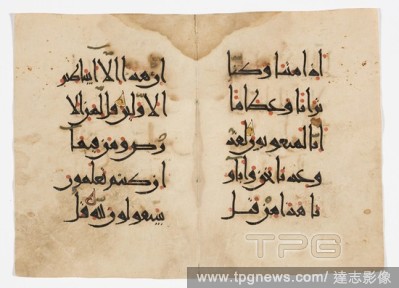 اذا متنا وكنا
ترابا وعظاما
انا لمبعوثون لقد
وعدنا نحن واباو
نا هذا من قبل
ان هذا الا اساطير
الاولين قل لمن الا
رض ومن فيها
ان كنتم تعلمون
سيقولون لله قل
TPG
www.tpgnews.com / 達志影像